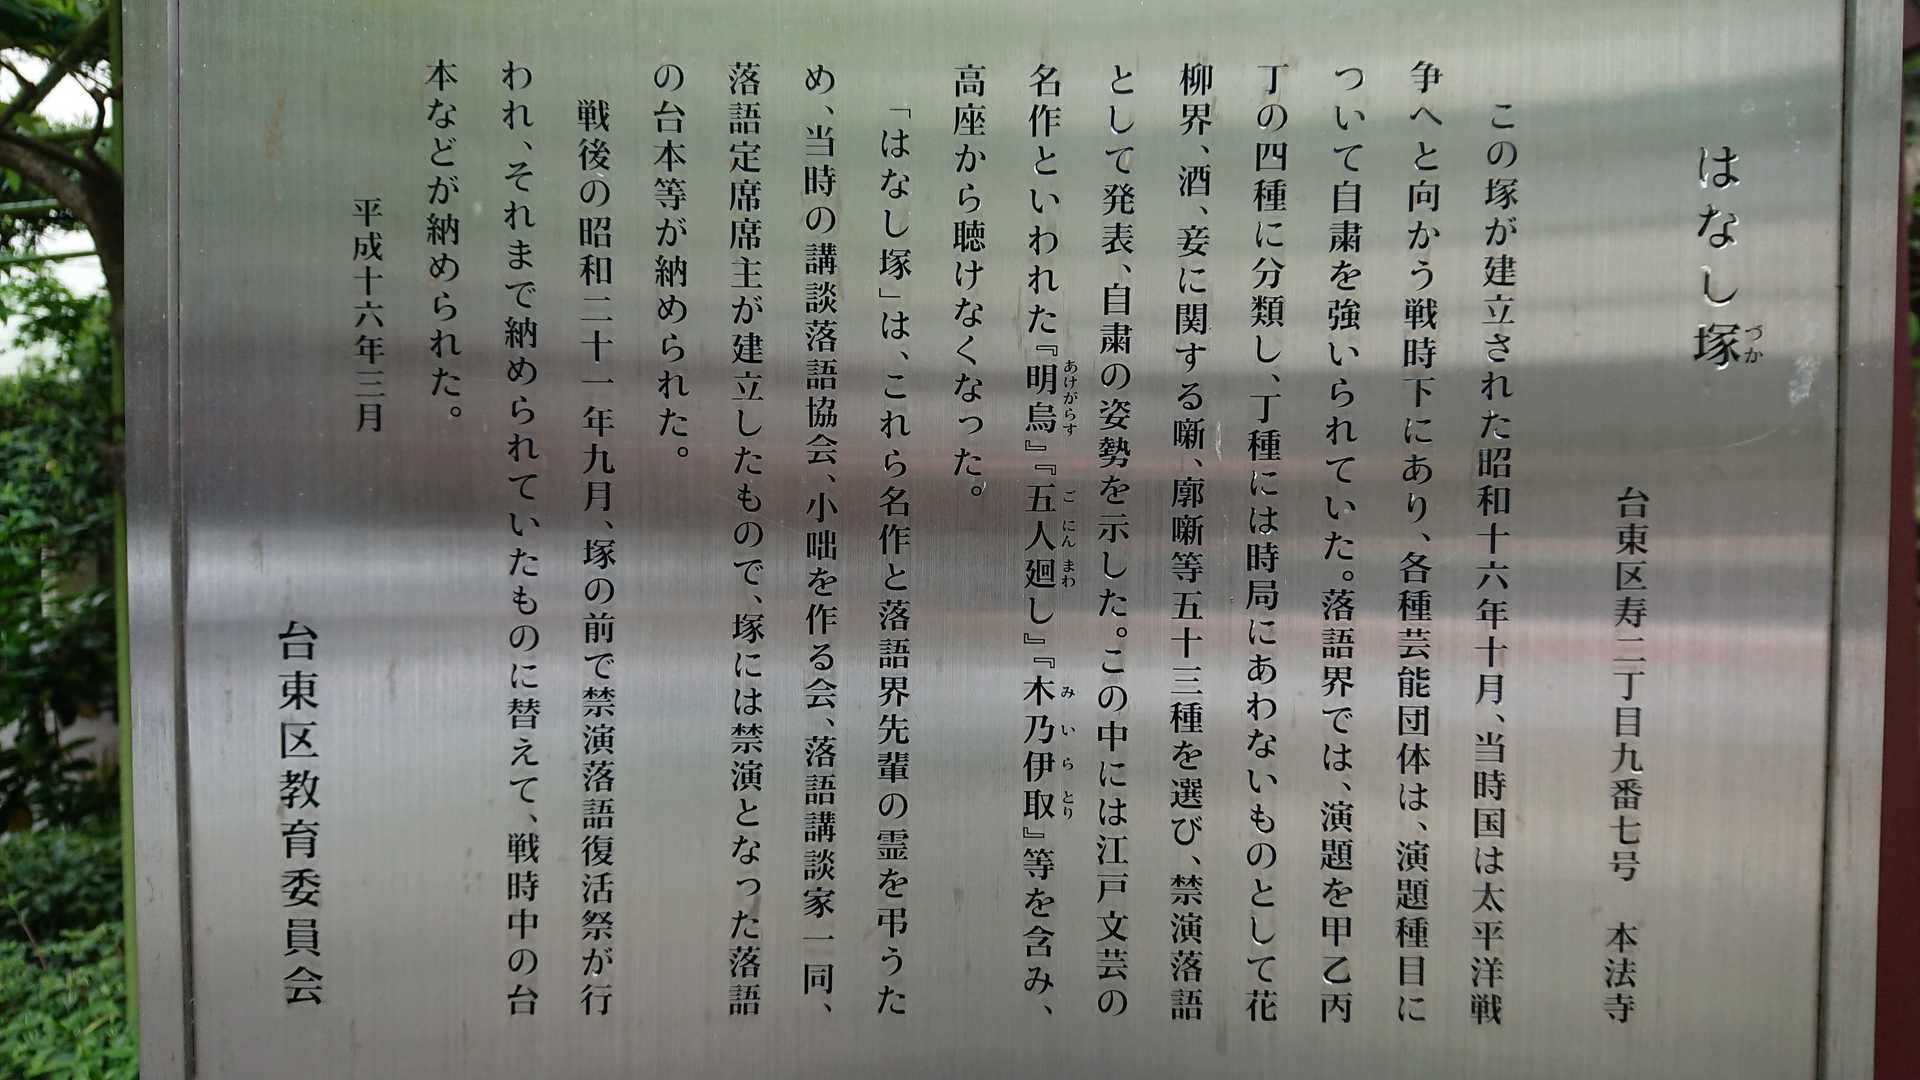 はなし塚
づか
台東区寿二丁目九番七号　本法寺
この塚が建立された昭和十六年十月、当時国は太平洋戦
争へと向かう戦時下にあり、各種芸能団体は、演題種目に
ついて自粛を強いられていた。落語界では、演題を甲乙丙
丁の四種に分類し、丁種には時局にあわないものとして花
柳界、酒、妾に関する噺、廓噺等五十三種を選び、禁演落語
として発表、自粛の姿勢を示した。この中には江戸文芸の
名作といわれた『明烏』『五人廻し』『木乃伊取』等を含み、
あけがらす　ごにんまわ　みいらとり
高座から聴けなくなった。
「はなし塚」は、これら名作と落語界先輩の霊を弔うた
め、当時の講談落語協会、小咄を作る会、落語講談家一同、
落語定席席主が建立したもので、塚には禁演となった落語
の台本等が納められた。
戦後の昭和二十一年九月、塚の前で禁演落語復活祭が行
われ、それまで納められていたものに替えて、戦時中の台
本などが納められた。
平成十六年三月
台東区教育委員会